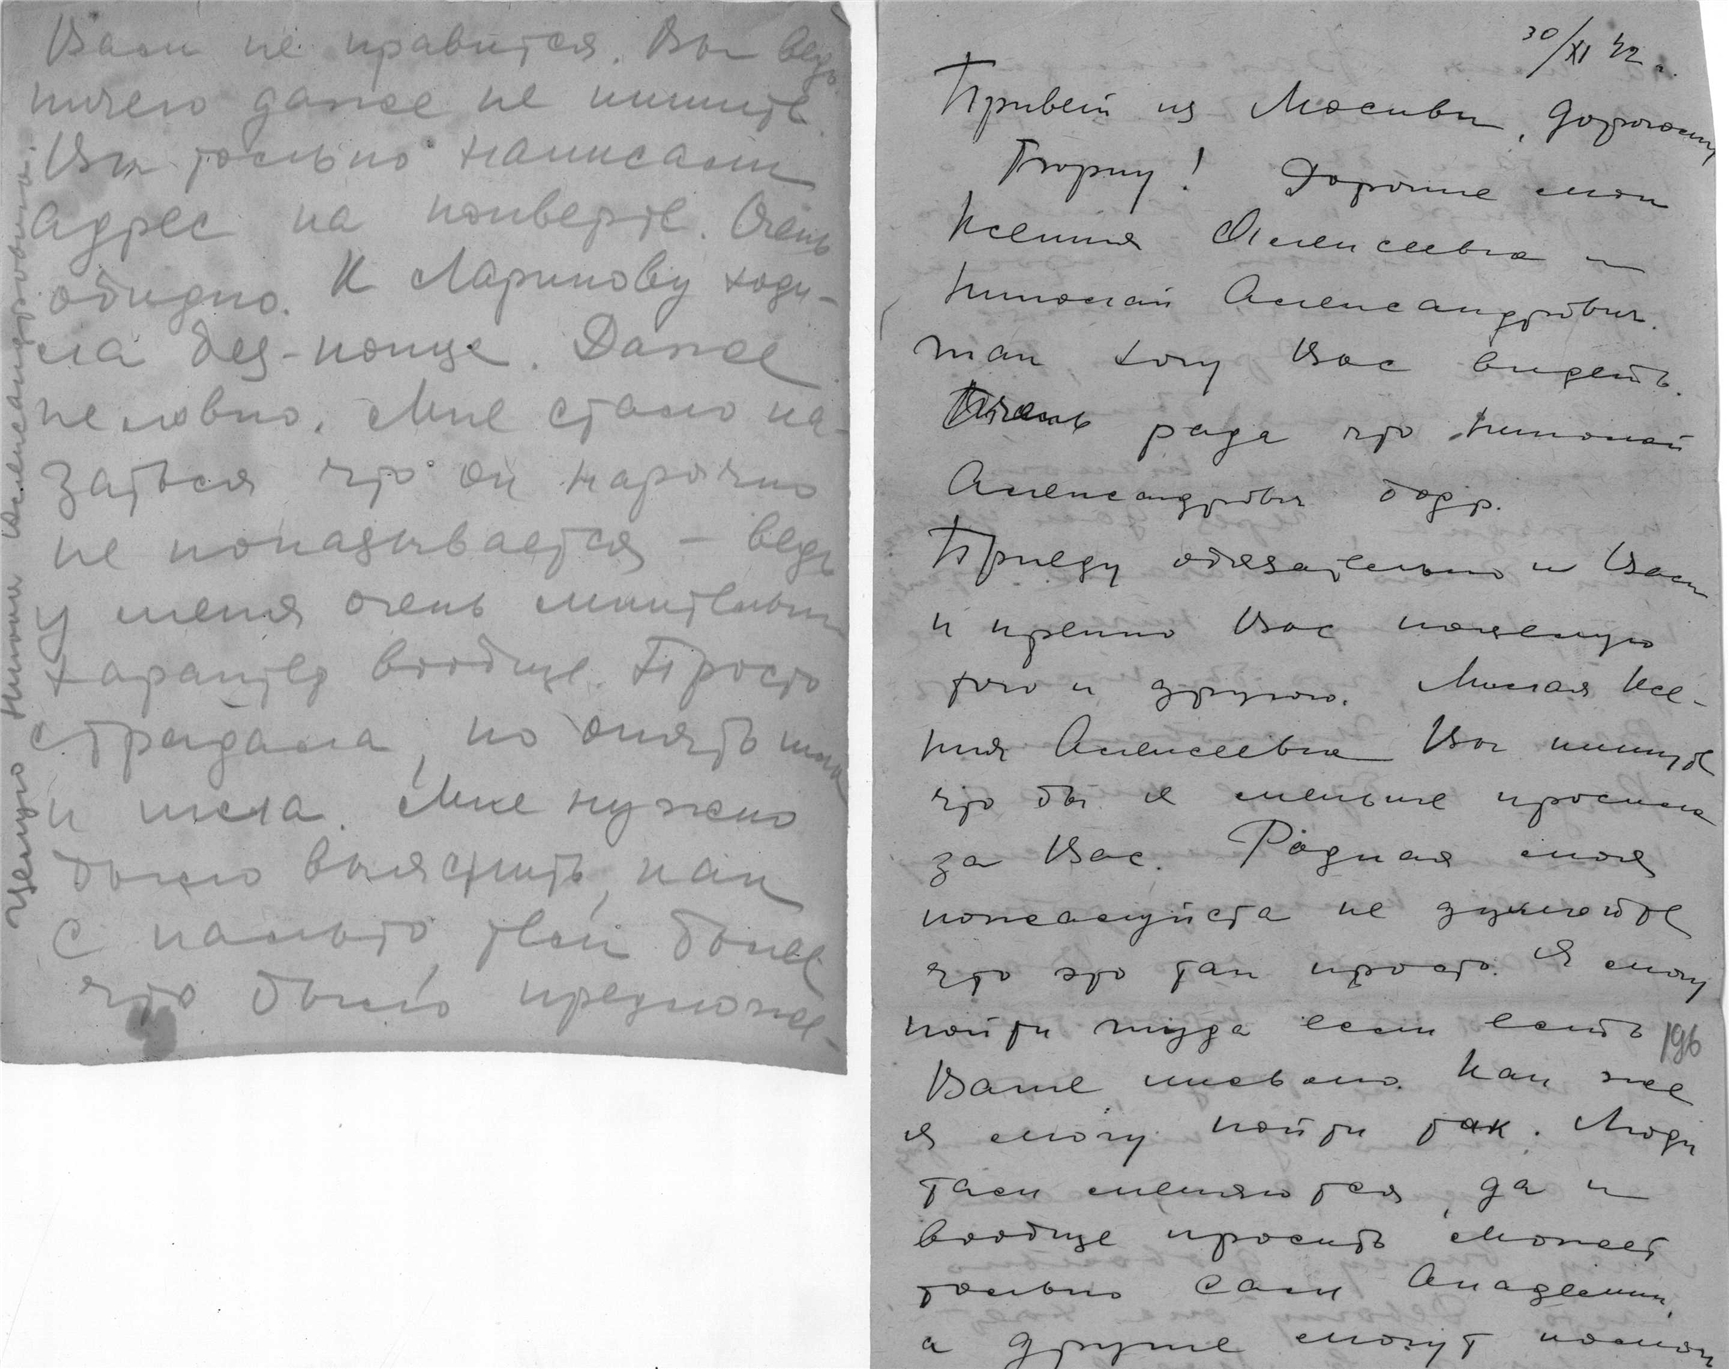 Вам не нравится. Вы ведь
ничего даже не пишите.
Вы только написали
адрес на конверте. Очень
обидно. К Ларикову ходи-
ла без-конце. Даже
неловко. Мне стало ка-
заться что он нарочно
не показывается – ведь
у меня очень мнительн
характер вообще. Просто
страдала, но опять шла
и шла. Мне нужно
было выяснить, как
с пальто, тем более
что было предложе-
Целую Ниночка Александровна.
30/XI 42 г.
Привет из Москвы, дорогому
Борку! Дорогие мои
Ксения Алексеевна и
Николай Александрович.
Так хочу Вас видеть.
Очень рада что Николай
Александрович бодр.
Приеду обязательно к Вам
и крепко Вас поцелую
того и другого. Милая Ксе-
ния Алексеевна Вы пишите
что бы я меньше просила
за Вас. Родная моя
пожалуйста не думайте
что это так просто. Я могу
пойти туда если есть
196
Ваше письмо. Как же
я могу пойти так. Люди
там меняются, да и
вообще просить может
только сам Академик,
а другие могут помоч